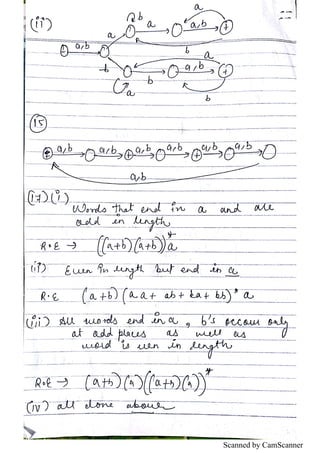 (ii) b
a a a,b a
- a,b b
b a,b a
a b b
(15)
± a,b a,b + a,b a,b + a,b a,b
a,b
(17)(i)
Words that end in a and are
odd in length
R.E → ((a+b)(a+b))*a
(ii) Even in length but end in a
R.E (a+b)(aa+ab+ba+bb)*a
(iii) All words end in a, b's occour only
at odd places as well as
word is even in length
R.E → (a+b)(a)((a+b)(a))*
(iv) all done above
Scanned by CamScanner